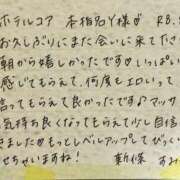 ホテルコア 本指名Y様♂ R8.
お久しぶりにまた会いに来て下さ
朝から嬉しかったです♡いっぱい
感じてもらえて、何度もエロいって
言ってもらえて良かったです♪マッサ
気持お良くなってもらえて少し自信
きました♂もっとレベルアップしてがっこ
せちゃいますね!
動様 すみ